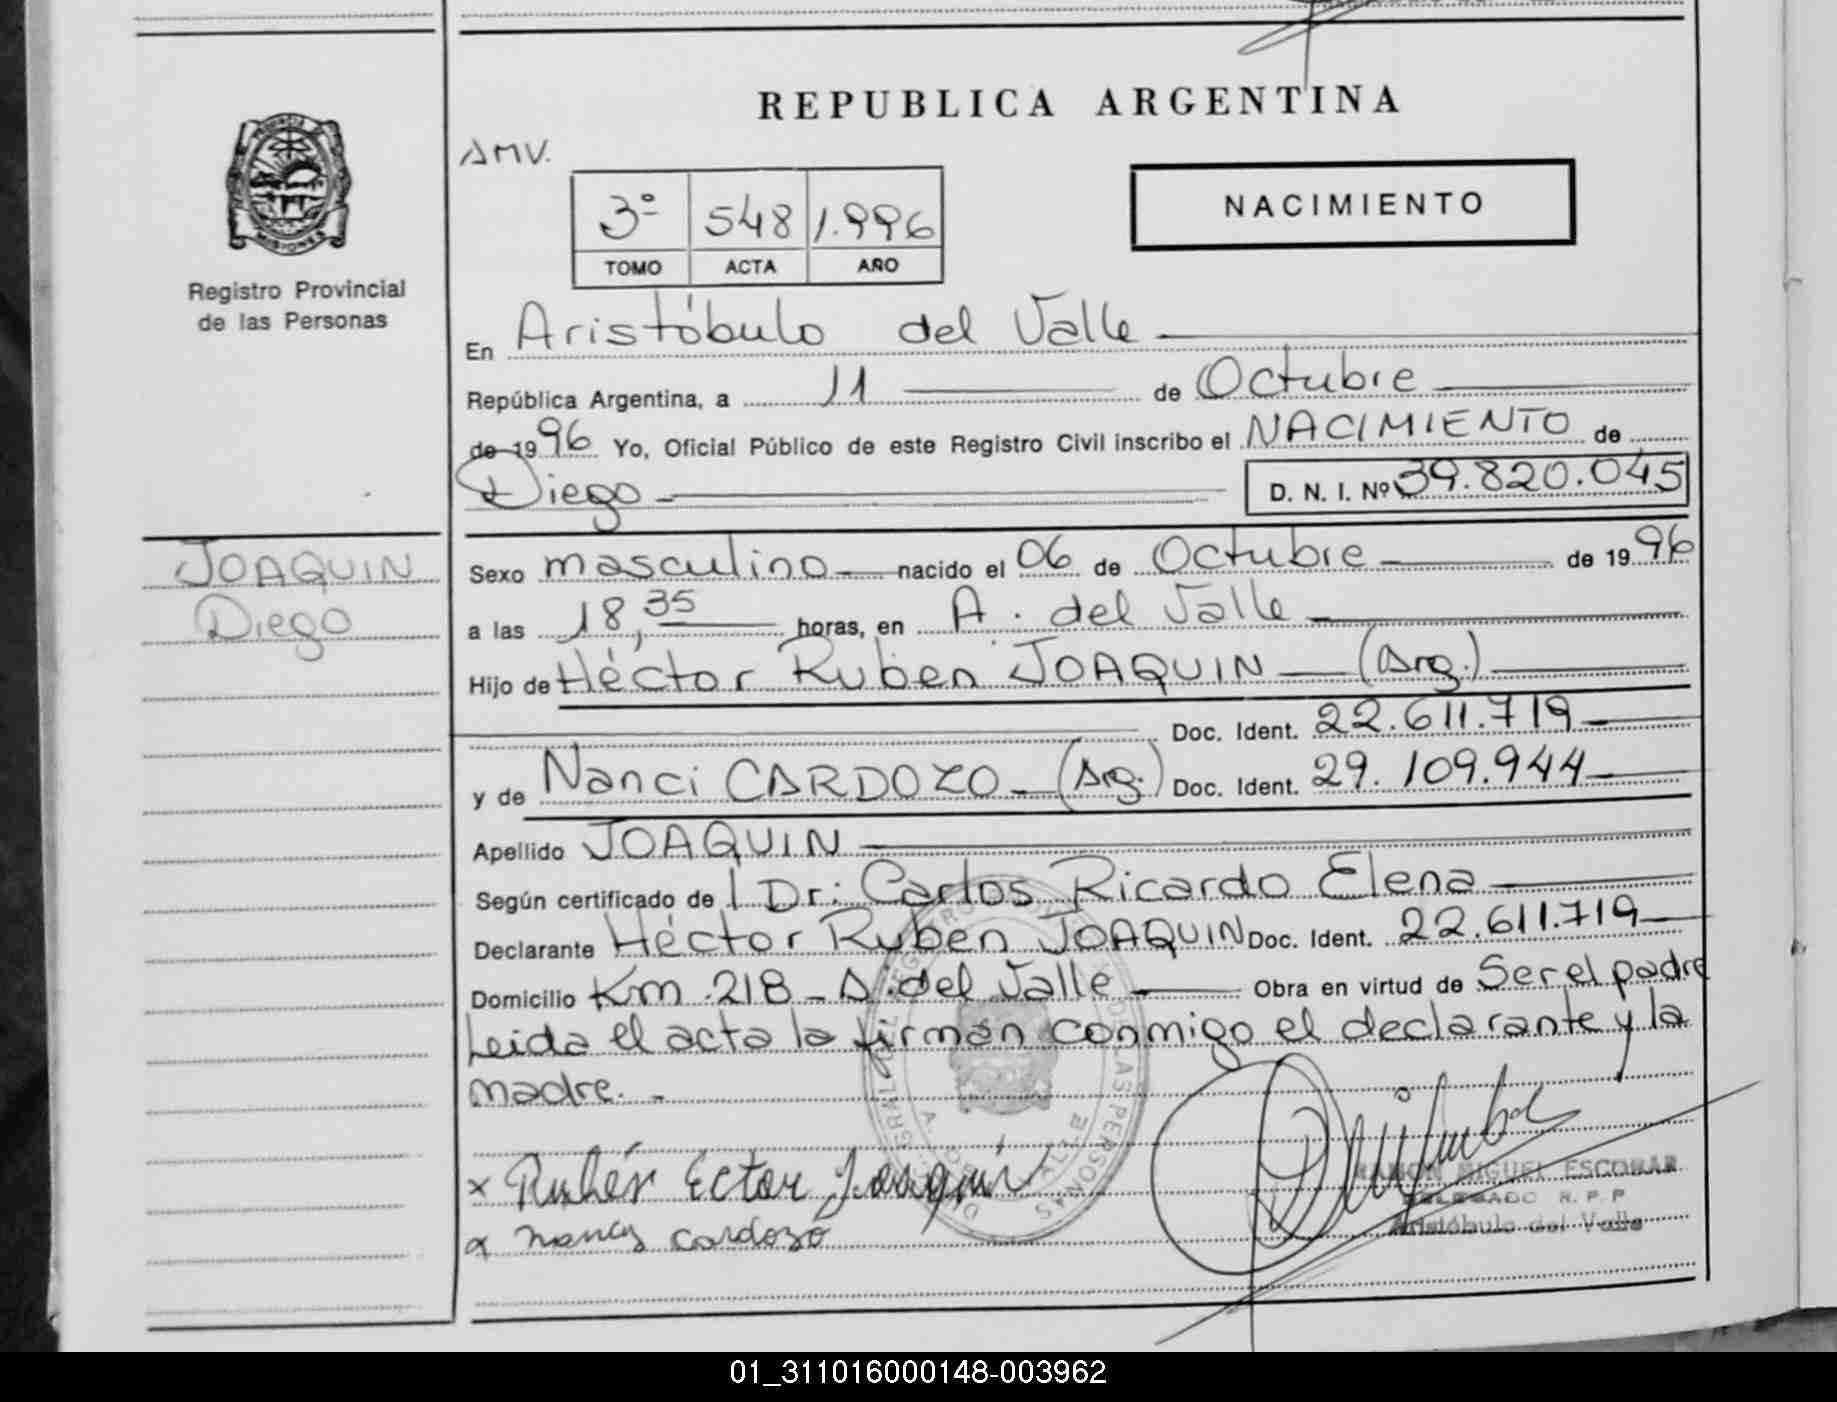 REPUBLICA ARGENTINA
AMV.
NACIMIENTO
3º 548 1.996
TOMO ACTA AÑO
MISIONES
Registro Provincial
de las Personas
En Aristóbulo del Valle
República Argentina, a 11 de Octubre
de 1996 Yo, Oficial Público de este Registro Civil inscribo el NACIMIENTO de
Diego D. N. I. Nº 39.820.045
JOAQUIN
Diego
Sexo masculino nacido el 06 de Octubre de 1996
a las 18,35 horas, en A. del Valle
Hijo de Héctor Ruben JOAQUIN (Arg.)
Doc. Ident. 22.611.719
y de Nanci CARDOZO (Arg.) Doc. Ident. 29.109.944
Apellido JOAQUIN
Según certificado de l Dr: Carlos Ricardo Elena
Declarante Héctor Ruben JOAQUIN Doc. Ident. 22.611.719
Domicilio Km 218 - A. del Valle Obra en virtud de Ser el padre
Leida el acta la firman conmigo el declarante y la
madre. -
x Rubén Ector Joaquin
x nancy cardozo
RAMON MIGUEL ESCOBAR
DELEGADO R. P. P
Aristóbulo del Valle
01_311016000148-003962